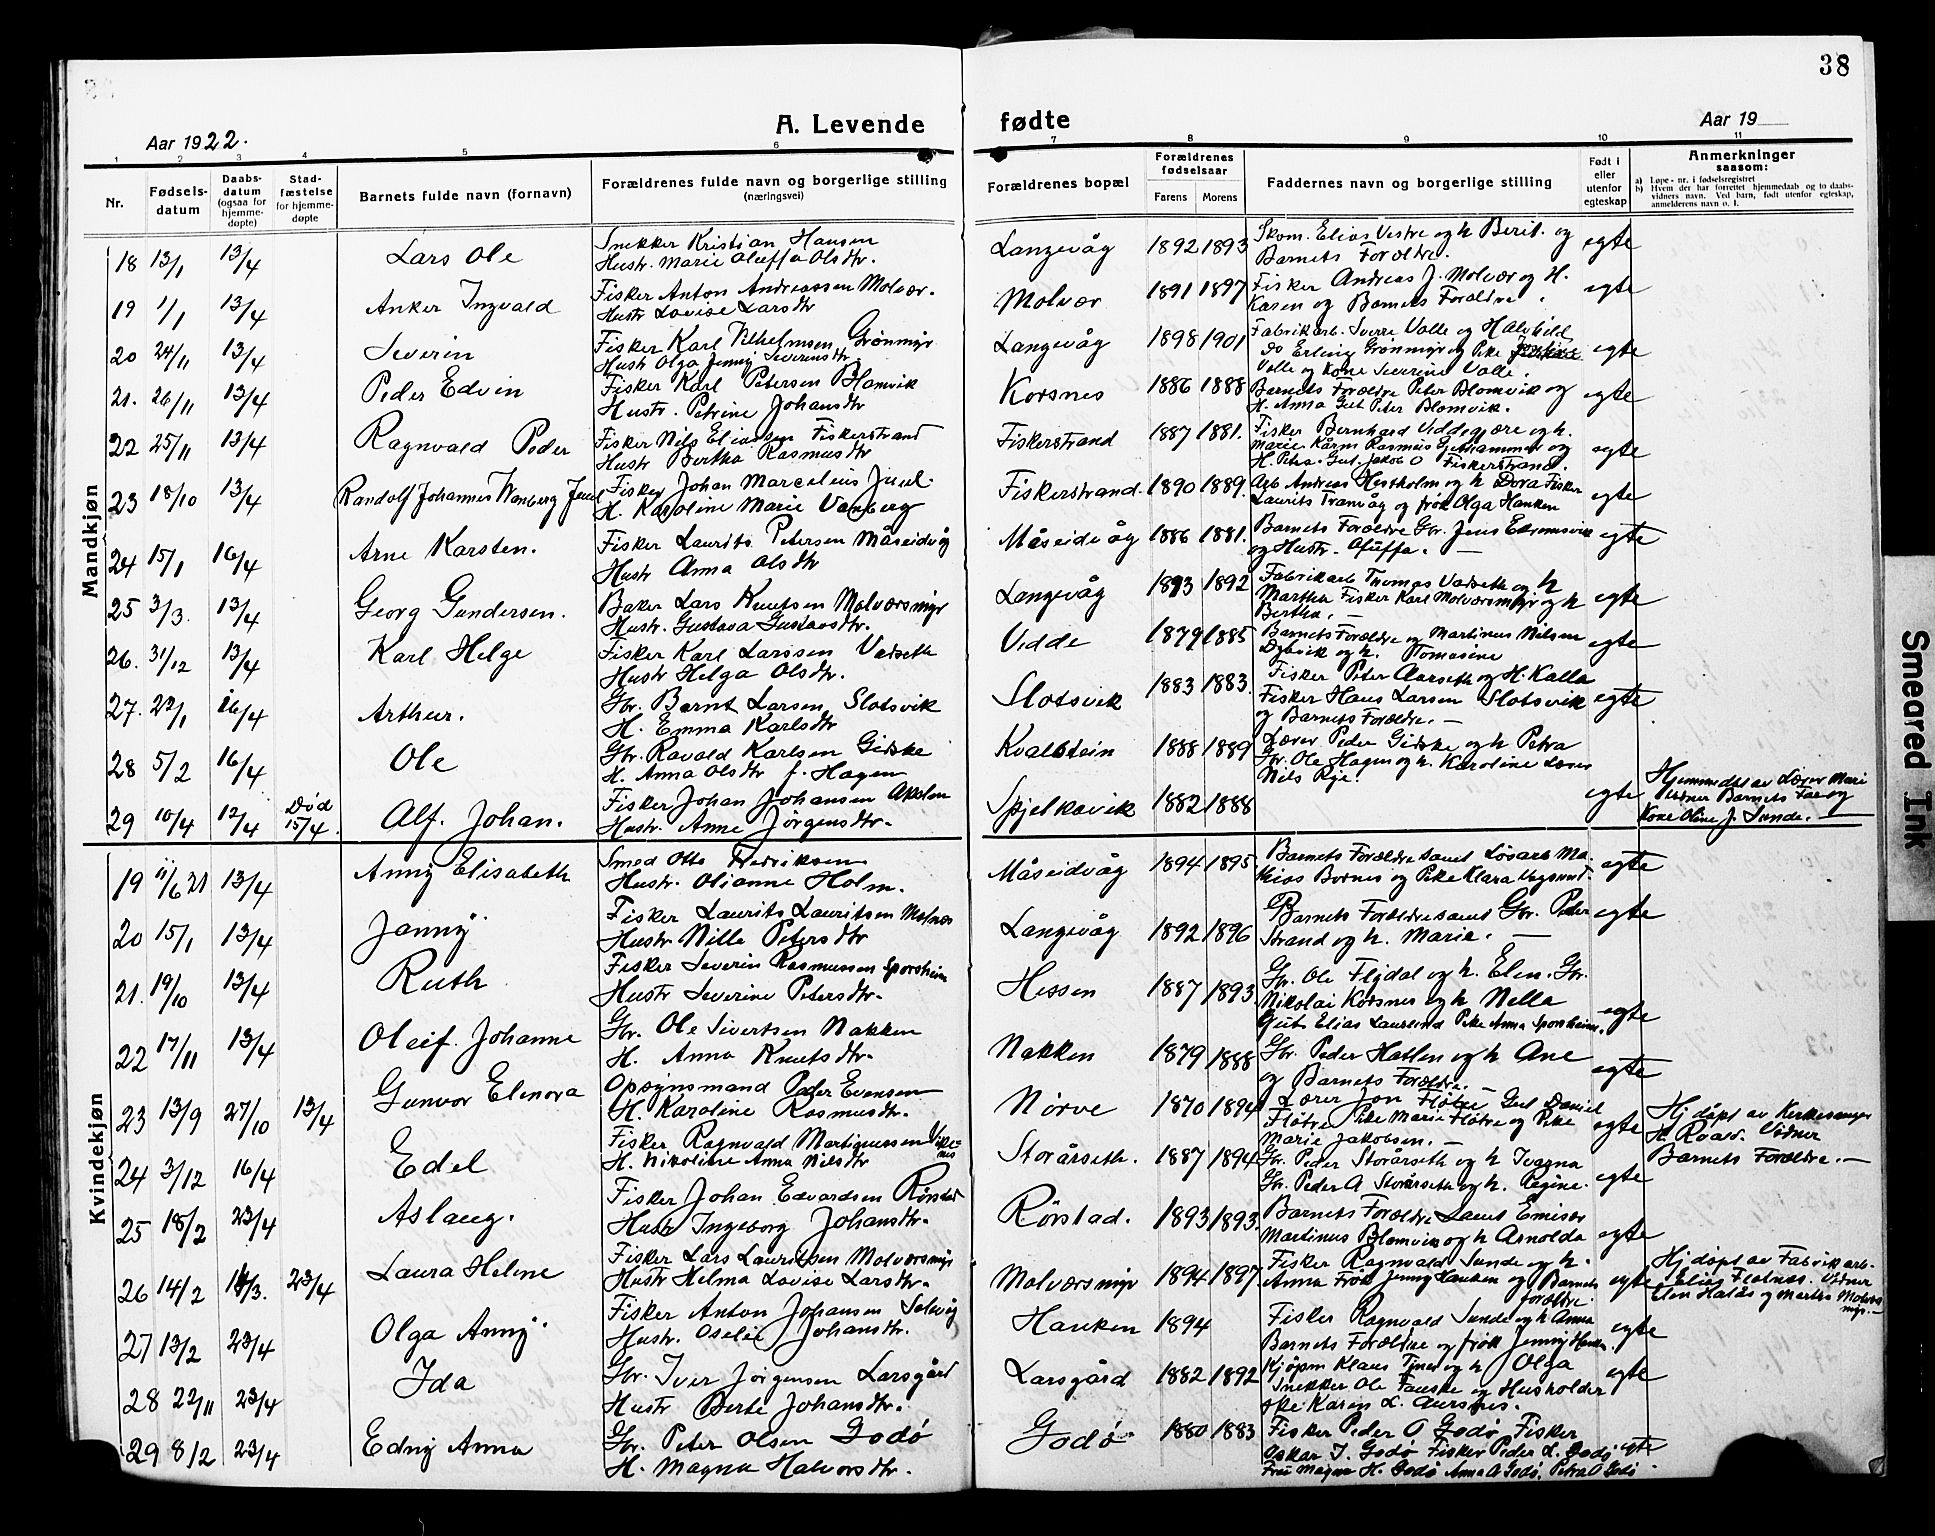 38
Aar 1922.
A. Levende
fødte
Aar 19
1 2 3 4 5 6 7 8 9 10 11
Nr.
Fødsels-
datum
Daabs-
datum
(ogsaa for
hjemme-
døpte)
Stad-
fæstelse
for hjemme-
døpte
Barnets fulde navn (fornavn)
Forældrenes fulde navn og borgerlige stilling
(næringsvei)
Forældrenes bopæl
Forældrenes
fødselsaar
Farens Morens
Faddernes navn og borgerlige stilling
Født i
eller
utenfor
egteskap
Anmerkninger
saasom:
a) Løpe-nr. i fødselsregistret
b) Hvem der har forrettet hjemmedaab og to daabs-
vidners navn. Ved barn, født utenfor egteskap,
anmelderens navn o. l.
Mandkjøn
18 13/1 13/4 Lars Ole Snekker Kristian Hansen Langevåg 1892 1893 Skom. Elias Vestre og h Berit. og egte
Hustr. Marie Oluffa Olsdtr. Barnets Forældre.
19 1/1 13/4 Anker Ingvald Fisker Anton Andreassen Molvær. Molvær 1891 1897 Fisker Andreas J. Molvær og H. egte
Hustr Lovise Larsdtr Karen og Barnets Forældre.
20 24/11 13/4 Severin Fisker Karl Vilhelmsen Grønmyr Langevåg 1898 1901 Fabrikarb. Sverre Valle og egte
Hustr Olga Jenny Severinsdtr. Do Erling Grønmyr og Pike
Valle og Kone Severine Valle.
21. 26/11 13/4 Peder Edvin Fisker Karl Petersen Blomvik Korsnes 1886 1888 Barnets Forældre Peter Blomvik og egte
Hustr. Petrine Johansdtr H. Anna Gut Peter Blomvik.
22 25/11 13/4 Ragnvald Peder Fisker Nils Eliassen Fiskerstrand Fiskerstrand 1887 1881. Fisker Bernhard og h. egte
Hustr Bertha Rasmusdtr Marie Rasmus og
H. Petra. Gut. Jakob O Fiskerstrand.
23 18/10 13/4 Randolf Johannes Wanberg Juul Fisker Johan Marcelius Juul. Fiskerstrand. 1890 1889. Arb Andreas Hestholm og h Dora Fisker egte
H. Karoline Marie Vanberg Laurits Tranvåg og frøk Olga Hanken
24 15/1 16/4 Arne Karsten. Fisker Laurits Petersen Måseidvåg Måseidvåg 1886 1881. Barnets Forældre Gbr. Jens egte
Hustr Anna Olsdtr og Hustr.
25 3/3. 13/4 Georg Gundersen. Baker Lars Knutsen Molværsmyr Langevåg 1893 1892 Fabrikarb Thomas Vadseth og h egte
Hustr. Gustava Gustavsdtr. Martha Fisker Karl Molværsmyr og h
Bertha.
26. 31/12 13/4 Karl Helge Fisker Karl Larssen Vadseth Vedde 1879 1885 Barnets Forældre og Martinus Nilsen egte
Hustr Helga Olsdtr. Dybvik og h. Tomasine
27. 22/1 16/4 Arthur. Gbr. Bernt Larsen Slotsvik Slotsvik 1883 1883. Fisker Peter Aarseth og H. Kalla egte
H. Emma Karlsdtr Fisker Hans Larsen Slotsvik
og Barnets Forældre.
28 5/2 16/4 Ole Gbr. Ravald Karlsen Giske Kvalstein 1888 1889 Lærer Peder Gidske og h Petra
H. Anna Olsdtr f. Hagen Gbr. Ole Hagen og h. Karoline
Nils Rye.
29 10/4 12/4 Død 15/4. Alf. Johan. Fisker Johan Johansen Spjelkavik 1882 1888 egte Hjemmedøpt av Lærer
Hustr. Anne Jørgensdtr. Vidner Barnets Far og
Kone Oline J. Sunde.
Kvindekjøn
19 11/6 21 13/4 Anny Elisabeth Smed Otto Fredriksen Måseidvåg 1894 1895 Barnets Forældre samt Løsarb Ma- egte
Hustr. Olianne Holm. thias Bornes og Pike Klara
20 15/1 13/4 Janny Fisker Laurits Lauritsen Molnes Langevåg 1892 1896 Barnets Forældre samt Gbr. Peder egte
Hustr Nille Petersdtr Strand og h. Marie.
21. 19/10 13/4 Ruth Fisker Severin Rasmussen Sporsheim Hessen 1887 1893 Gbr. Ole Flydal og h. Elen. Gbr.
Hustr Severine Petersdtr. Nikolai Korsnes og h Nella egte
Gut Elias Pike Anna Sporsheim.
22 17/11 13/4 Oleif. Johanne Gbr. Ole Sivertsen Nakken Nakken 1879 1888 Gbr. Peder Hatlen og h Ane egte
H. Anna Knutsdtr. og Barnets Forældre.
23 13/9 27/10 13/4 Gunvor Elenora Opsynsmand Peder Evensen Nørve 1870 1894 Lærer Jon Fløtre Gut Daniel egte Hj døpt av Kirkesanger
H. Karoline Rasmusdtr. Fløtre Pike Marie Fløtre og Pike H. Roald. Vidner
Marie Jakobsen. Barnets Forældre.
24 3/12 16/4 Edel Fisker Ragnvald Martinussen Storårseth. 1887 1894 Gbr. Peder Storårseth og h Ivarna egte
H. Nikoline Anna Nilsdtr Gbr. Peder A Storårseth og h. Regine.
25 18/2 23/4 Aslaug. Fisker Johan Edvardsen Rørstad Rørstad. 1893 1893. Barnets Forældre samt Emisær egte
Hustr Ingeborg Johansdtr. Martinus Blomvik og h Arnolda
26 14/2 14/3. 23/4 Laura Helene Fisker Lars Lauritsen Molværsmyr Molværsmyr 1894 1897 Fisker Ragnvald Sunde og h. egte Hj døpt av Fabrikarb.
Hustr Helma Lovise Larsdtr. Anna Frøk Jenny Hanken og Barnets Elias Flatnes. Vidner
forældre Elen Halås og Martha Molværs
myr.
27 13/2 23/4 Olga Anny Fisker Anton Johansen Solvåg Hanken 1894 Fisker Ragnvald Sunde og h Anna egte
Hustr. Oselie Johansdtr. Barnets Forældre og frøk Jenny Hanken.
28 22/11 23/4 Ida Gbr. Iver Jørgensen Larsgård Larsgård 1882 1892 Kjøpm Klaus Tynes og h Olga egte
Hustr Berte Johansdtr. Snekker Ole Fauske og Husholder
ske Karen L. Aursnes.
29 8/2 23/4 Edny Anna Gbr. Peter Olsen Godø Godø 1880 1883 Fisker Peder O Godø Fisker egte
H. Magna Halvorsdtr. Oskar J. Godø Fisker Peder L. Godø
Fru Magna H. Godø Anna A Godø, Petra O Godø
Smeared Ink